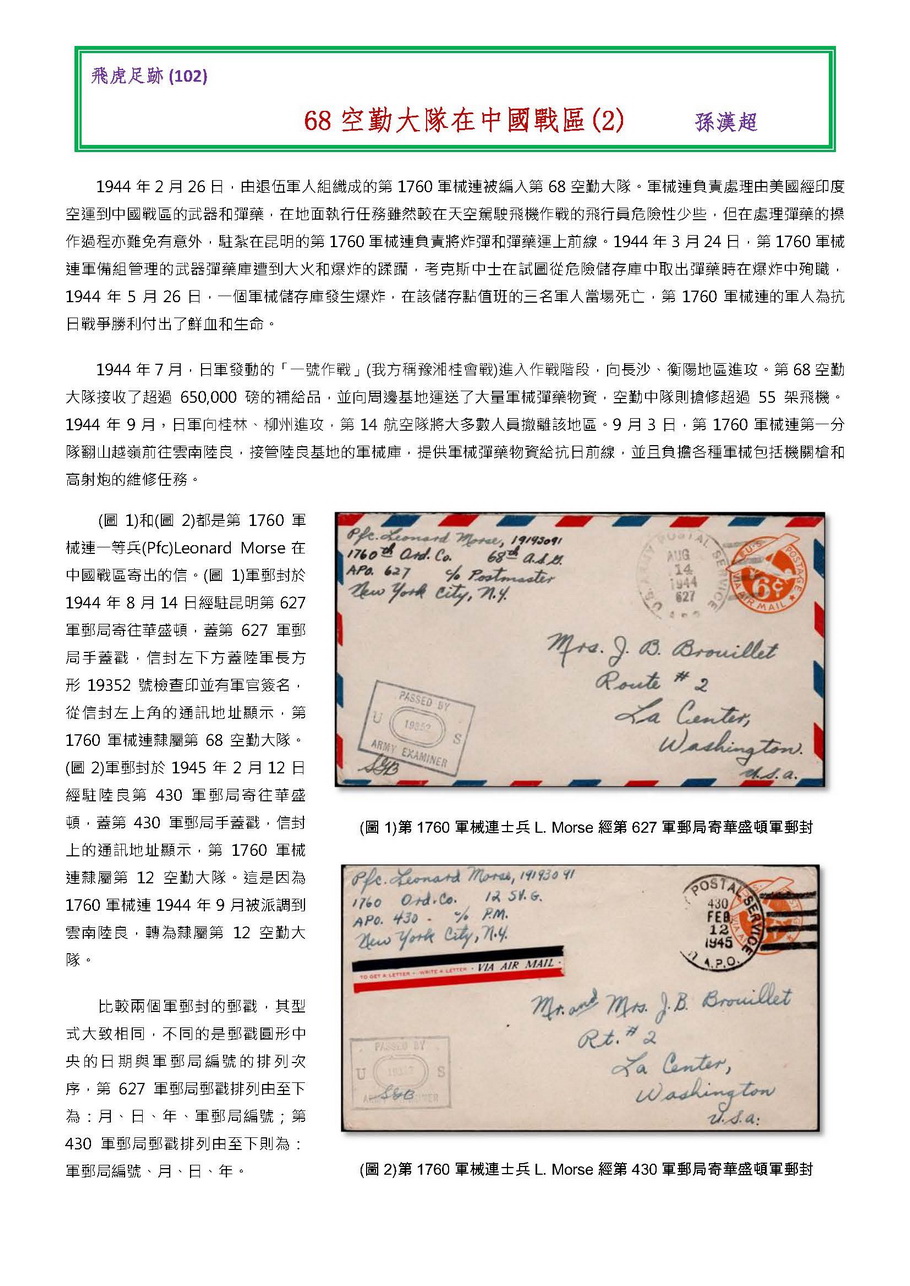 飛虎足跡 (102)
68 空勤大隊在中國戰區(2) 孫漢超
1944 年 2 月 26 日，由退伍軍人組織成的第 1760 軍械連被編入第 68 空勤大隊。軍械連負責處理由美國經印度
空運到中國戰區的武器和彈藥，在地面執行任務雖然較在天空駕駛飛機作戰的飛行員危險性少些，但在處理彈藥的操
作過程亦難免有意外，駐紮在昆明的第 1760 軍械連負責將炸彈和彈藥運上前線。1944 年 3 月 24 日，第 1760 軍械
連軍備組管理的武器彈藥庫遭到大火和爆炸的蹂躪，考克斯中士在試圖從危險儲存庫中取出彈藥時在爆炸中殉職，
1944 年 5 月 26 日，一個軍械儲存庫發生爆炸，在該儲存點值班的三名軍人當場死亡，第 1760 軍械連的軍人為抗
日戰爭勝利付出了鮮血和生命。
1944 年 7 月，日軍發動的「一號作戰」(我方稱豫湘桂會戰)進入作戰階段，向長沙、衡陽地區進攻。第 68 空勤
大隊接收了超過 650,000 磅的補給品，並向周邊基地運送了大量軍械彈藥物資，空勤中隊則搶修超過 55 架飛機。
1944 年 9 月，日軍向桂林、柳州進攻，第 14 航空隊將大多數人員撤離該地區。9 月 3 日，第 1760 軍械連第一分
隊翻山越嶺前往雲南陸良，接管陸良基地的軍械庫，提供軍械彈藥物資給抗日前線，並且負擔各種軍械包括機關槍和
高射炮的維修任務。
(圖 1)和(圖 2)都是第 1760 軍
械連一等兵(Pfc)Leonard Morse 在
中國戰區寄出的信。(圖 1)軍郵封於
1944 年 8 月 14 日經駐昆明第 627
軍郵局寄往華盛頓，蓋第 627 軍郵
局手蓋戳，信封左下方蓋陸軍長方
形 19352 號檢查印並有軍官簽名，
從信封左上角的通訊地址顯示，第
1760 軍械連隸屬第 68 空勤大隊。
(圖 2)軍郵封於 1945 年 2 月 12 日
經駐陸良第 430 軍郵局寄往華盛
頓，蓋第 430 軍郵局手蓋戳，信封
上的通訊地址顯示，第 1760 軍械
連隸屬第 12 空勤大隊。這是因為
1760 軍械連 1944 年 9 月被派調到
雲南陸良，轉為隸屬第 12 空勤大
隊。
比較兩個軍郵封的郵戳，其型
式大致相同，不同的是郵戳圓形中
央的日期與軍郵局編號的排列次
序，第 627 軍郵局郵戳排列由至下
為：月、日、年、軍郵局編號；第
430 軍郵局郵戳排列由至下則為：
軍郵局編號、月、日、年。
Pfc. Leonard Morse, 19193091
1760th Ord. Co. 68th A.S.G.
APO. 627 c/o Postmaster
New York City, N.Y.
U.S. ARMY POSTAL SERVICE
AUG
14
1944
627
A.P.O.
U.S. POSTAGE
6¢
VIA AIR MAIL
Mrs. J. B. Brouillet
Route # 2
La Center,
Washington.
U.S.A.
PASSED BY
U 19352 S
ARMY EXAMINER
(圖 1)第 1760 軍械連士兵 L. Morse 經第 627 軍郵局寄華盛頓軍郵封
Pfc. Leonard Morse, 19193091
1760 Ord. Co. 12 SV. G.
APO. 430 - c/o P.M.
New York City, N.Y.
TO GET A LETTER - WRITE A LETTER - VIA AIR MAIL
POSTAL SERVICE
430
FEB
12
1945
A.P.O.
Mr. and Mrs. J. B. Brouillet
Rt. # 2
La Center,
Washington
U.S.A.
PASSED BY
U S
ARMY EXAMINER
(圖 2)第 1760 軍械連士兵 L. Morse 經第 430 軍郵局寄華盛頓軍郵封